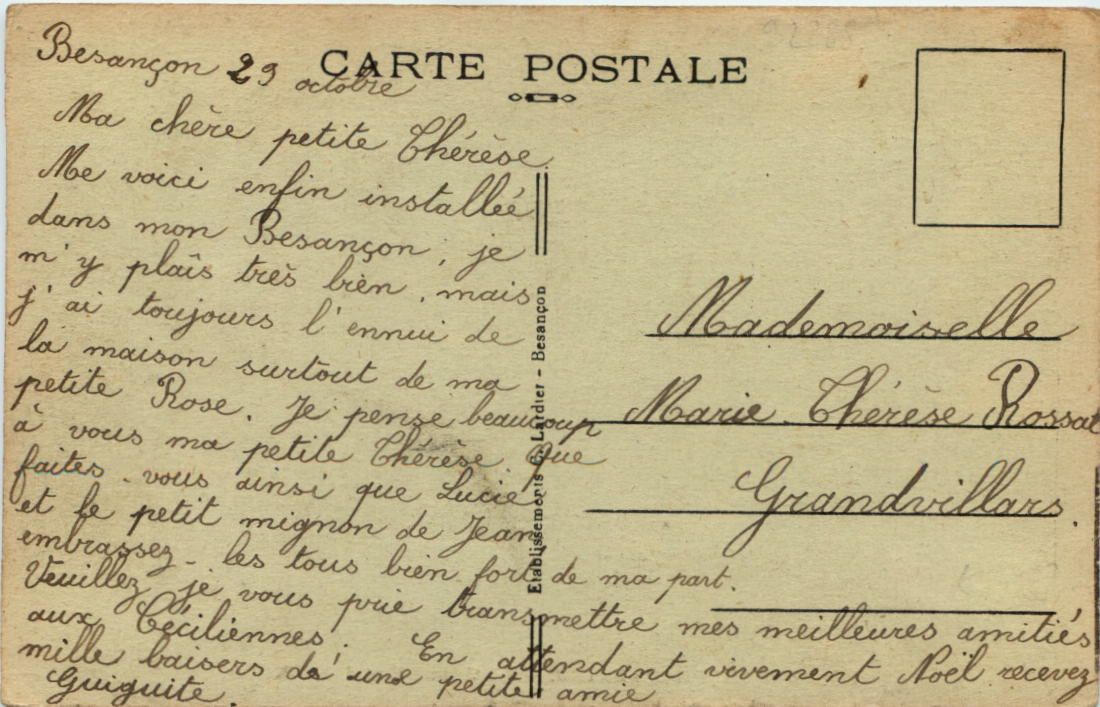 CARTE POSTALE
Besançon 29 octobre
Ma chère petite Thérèse.
Me voici enfin installée
dans mon Besançon, je
m'y plaîs très bien, mais
j'ai toujours l'ennui de
la maison surtout de ma
petite Rose. Je pense beaucoup
à vous ma petite Thérèse. Que
faites-vous ainsi que Lucie
et le petit mignon de Jean,
embrassez-les tous bien fort de ma part.
Veuillez je vous prie transmettre mes meilleures amitiés
aux Céciliennes. En attendant vivement Noël recevez
mille baisers de une petite amie
Guiguite.
Etablissements C. Lardier - Besançon
Mademoiselle
Marie-Thérèse Rossat
Grandvillars.